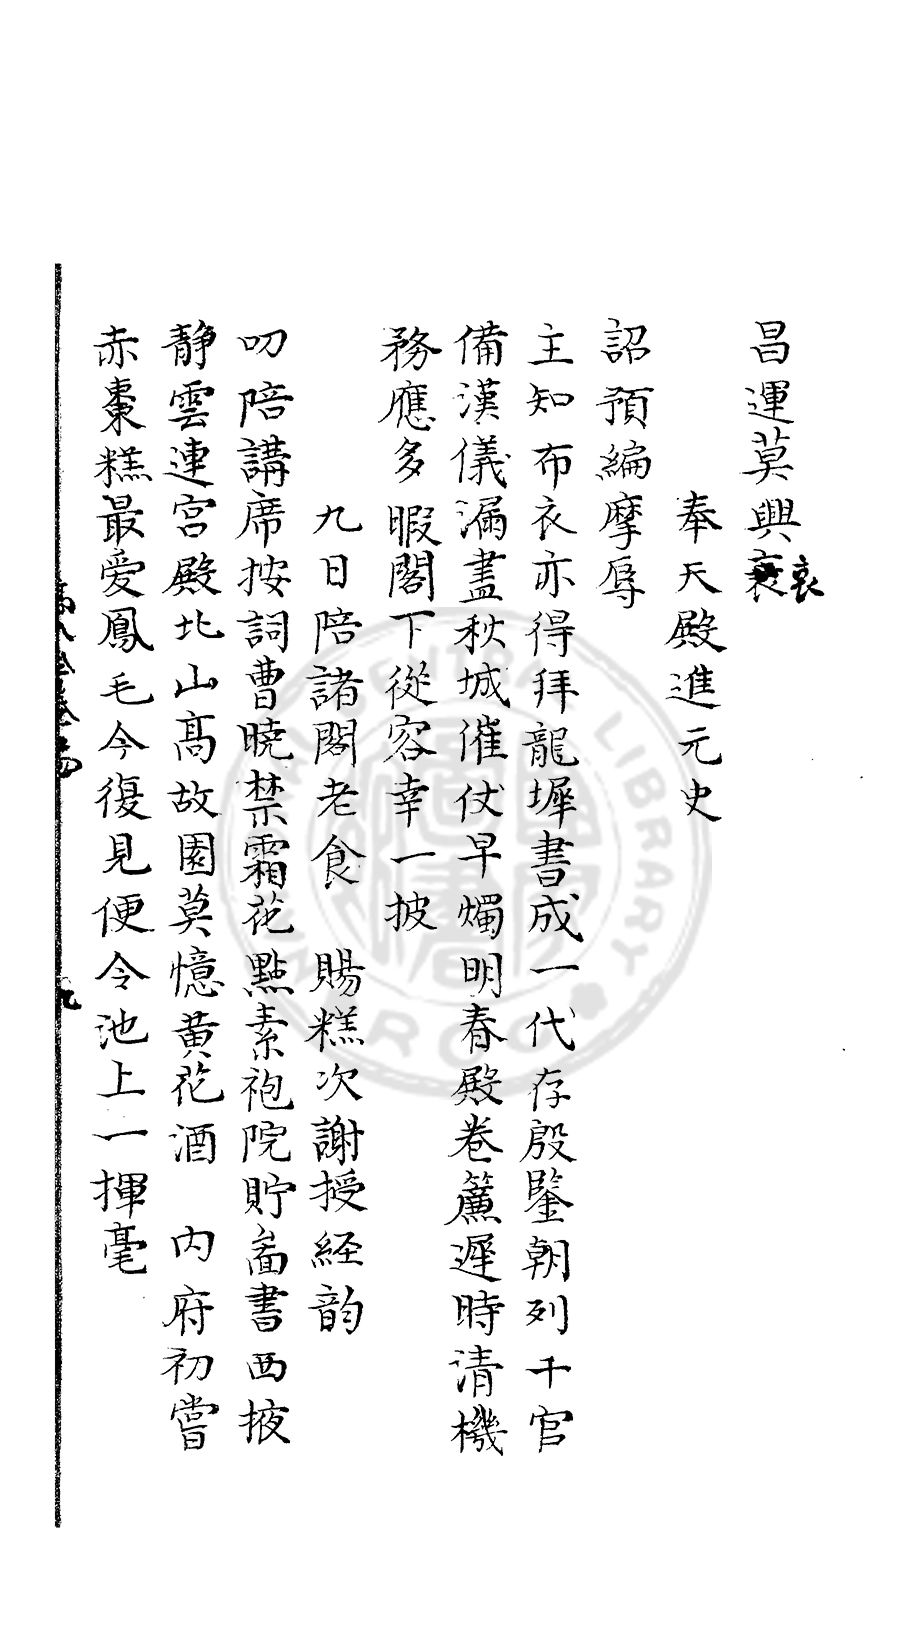 昌運莫興衰
衰
奉天殿進元史
詔預編摩辱
主知布衣亦得拜龍墀書成一代存殷鑒朝列千官
備漢儀漏盡秋城催仗早燭明春殿卷簾遲時清機
務應多暇閣下從容幸一披
九日陪諸閣老食 賜糕次謝授経韵
叨陪講席按詞曹曉禁霜花點素袍院貯畵書西掖
静雲連宫殿北山高故園莫憶黄花酒 内府初嘗
赤棗糕最愛鳳毛今復見便令池上一揮毫
九
CENTRAL LIBRARY